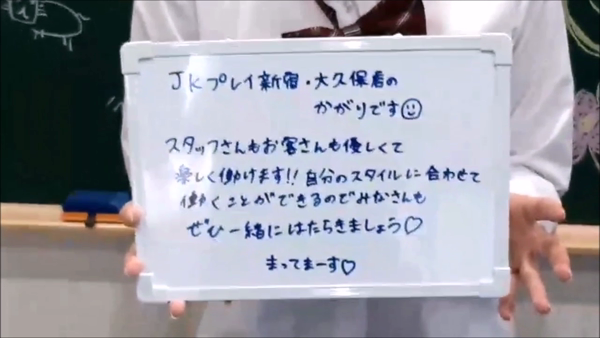 JKプレイ新宿・大久保店の
かがりです☺
スタッフさんもお客さんも優しくて
楽しく働けます!!自分のスタイルに合わせて
働くことができるのでみなさんも
ぜひ一緒にはたらきましょう♡
まってまーす♡